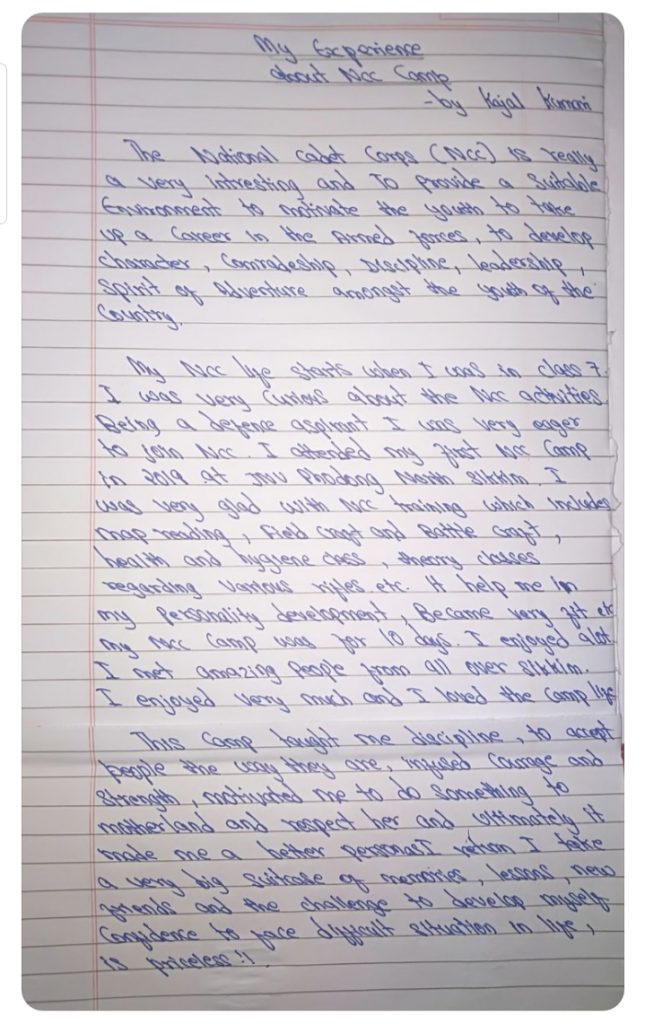 My Experience
about Ncc Camp
-by Kajal Kumari
The National cadet Corps (Ncc) is really
a very intresting and To Provide a Suitable
Environment to motivate the youth to take
up a Career in the Armed forces, to develop
character, Comradeship, Discipline, leadership,
Spirit of Adventure amongst the youth of the
Country.
My Ncc life starts when I was in class 7.
I was very Curious about the Ncc activities
Being a defense aspirant I was very eager
to join Ncc. I attended my first Ncc Camp
in 2019 at JNV Phodong North Sikkim. I
was very glad with Ncc training which includes
map reading, Field Craft and Battle Craft,
health and hygiene class, theory classes
regarding various rifles.etc. It help me in
my Personality development, Became very fit etc
my Ncc Camp was for 10 days. I enjoyed alot.
I met amazing People from all over Sikkim.
I enjoyed very much and I loved the Camp life
This Camp taught me discipline, to accept
people the way they are, infused Courage and
Strength, motivated me to do something to
motherland and respect her and ultimately it
made me a better person I return I take
a very big Suitcase of memories, lessons, new
friends and the challenge to develop myself
Confidence to face difficult situation in life,
is priceless!!